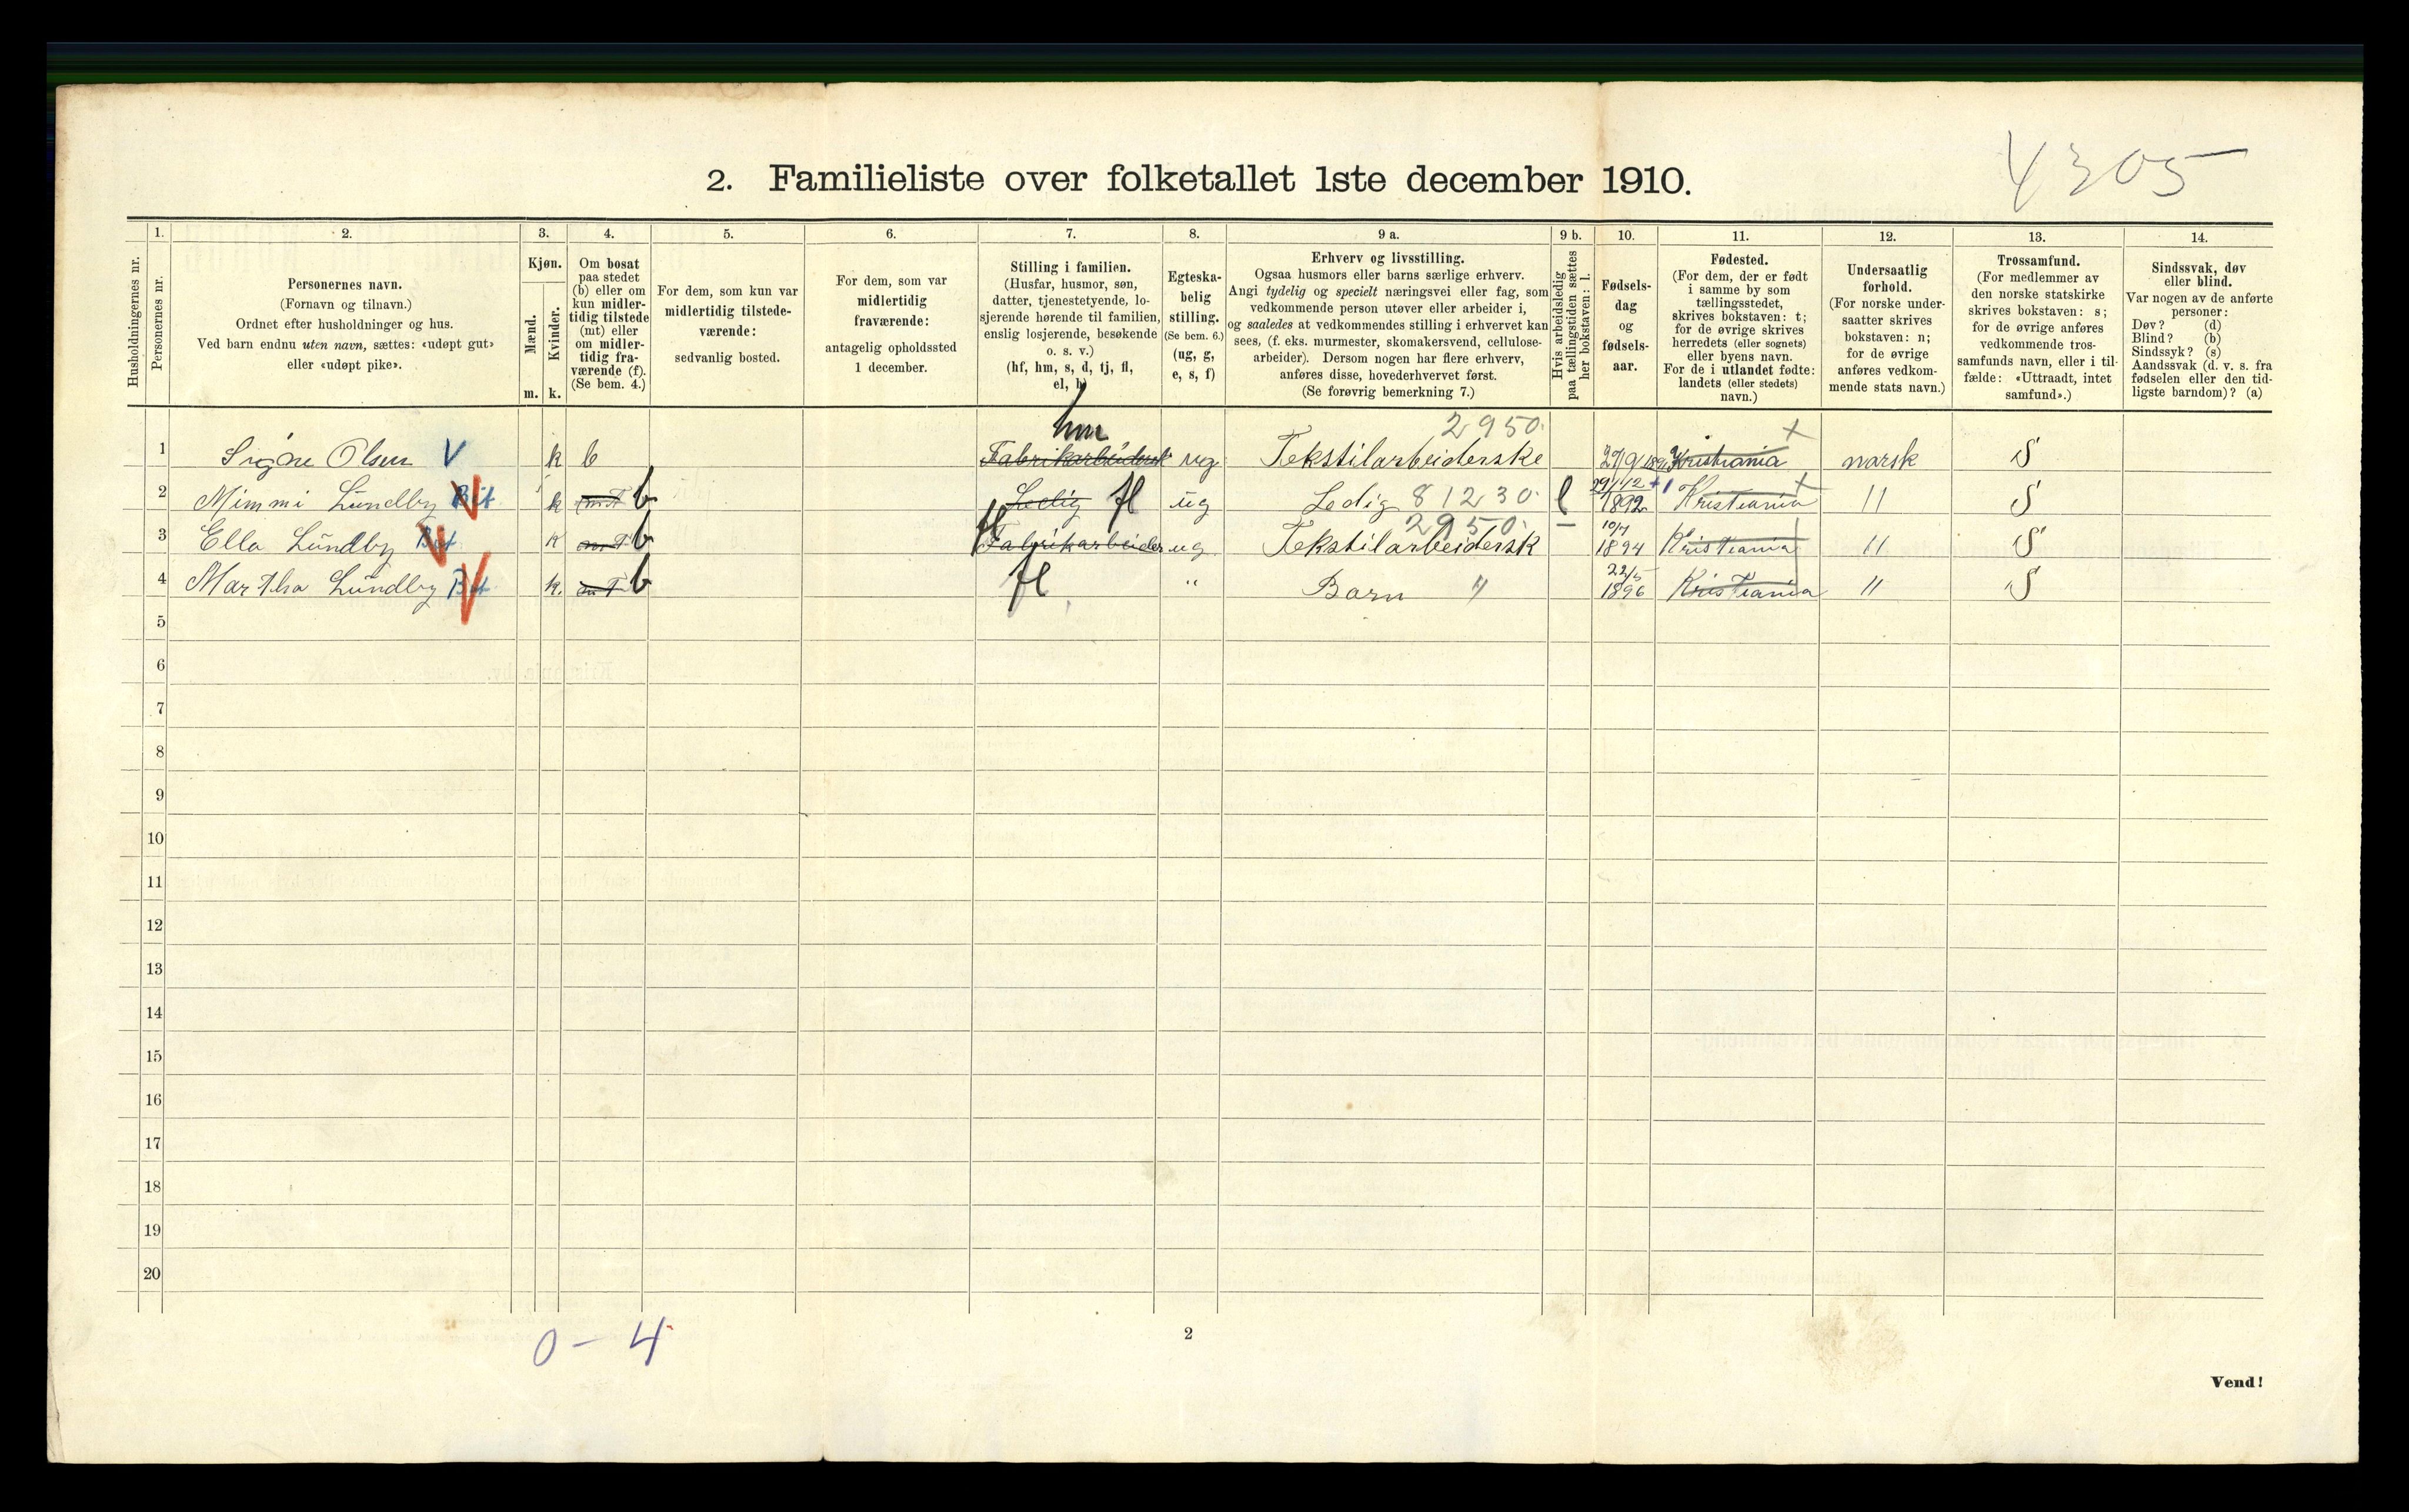 4305
2. Familieliste over folketallet 1ste december 1910.
Husholdningernes nr.
1.
Personernes nr.
2.
Personernes navn.
(Fornavn og tilnavn.)
Ordnet efter husholdninger og hus.
Ved barn endnu uten navn, sættes: «udøpt gut»
eller «udøpt pike».
3.
Kjøn.
Mænd.
Kvinder.
m. k.
4.
Om bosat
paa stedet
(b) eller om
kun midler-
tidig tilstede
(mt) eller
om midler-
tidig fra-
værende (f).
(Se bem. 4.)
5.
For dem, som kun var
midlertidig tilstede-
værende:
sedvanlig bosted.
6.
For dem, som var
midlertidig
fraværende:
antagelig opholdssted
1 december.
7.
Stilling i familien.
(Husfar, husmor, søn,
datter, tjenestetyende, lo-
sjerende hørende til familien,
enslig losjerende, besøkende
o. s. v.)
(hf, hm, s, d, tj, fl,
el, b)
8.
Egteska-
belig
stilling.
(Se bem. 6.)
(ug, g,
e, s, f)
9 a.
Erhverv og livsstilling.
Ogsaa husmors eller barns særlige erhverv.
Angi tydelig og specielt næringsvei eller fag, som
vedkommende person utøver eller arbeider i,
og saaledes at vedkommendes stilling i erhvervet kan
sees, (f. eks. murmester, skomakersvend, cellulose-
arbeider). Dersom nogen har flere erhverv,
anføres disse, hovederhvervet først.
(Se forøvrig bemerkning 7.)
9 b.
Hvis arbeidsledig
paa tællingstiden sættes
her bokstaven: l.
10.
Fødsels-
dag
og
fødsels-
aar.
11.
Fødested.
(For dem, der er født
i samme by som
tællingsstedet,
skrives bokstaven: t;
for de øvrige skrives
herredets (eller sognets)
eller byens navn.
For de i utlandet fødte:
landets (eller stedets)
navn.)
12.
Undersaatlig
forhold.
(For norske under-
saatter skrives
bokstaven: n;
for de øvrige
anføres vedkom-
mende stats navn.)
13.
Trossamfund.
(For medlemmer av
den norske statskirke
skrives bokstaven: s;
for de øvrige anføres
vedkommende tros-
samfunds navn, eller i til-
fælde: «Uttraadt, intet
samfund».)
14.
Sindssvak, døv
eller blind.
Var nogen av de anførte
personer:
Døv? (d)
Blind? (b)
Sindssyk? (s)
Aandssvak (d. v. s. fra
fødselen eller den tid-
ligste barndom)? (a)
hm 2950. +
1 Signe Olsen V k b Fabrikarbeidersk ug Tekstilarbeiderske 27/9 Kristiania norsk S
2 Mimmi Lundby V k mT b Ledig fl ug Ledig 81230. l 29/12 1892 Kristiania + 11 S
3 Ella Lundby V k mT b fl Fabrikarbeider ug 2950. Tekstilarbeidersk — 10/7 1894 Kristiania 11 S
4 Martha Lundby V k. mT b fl " Barn " 22/5 1896 Kristiania 11 S
5
6
7
8
9
10
11
12
13
14
15
16
17
18
19
20
0 – 4
2
Vend!